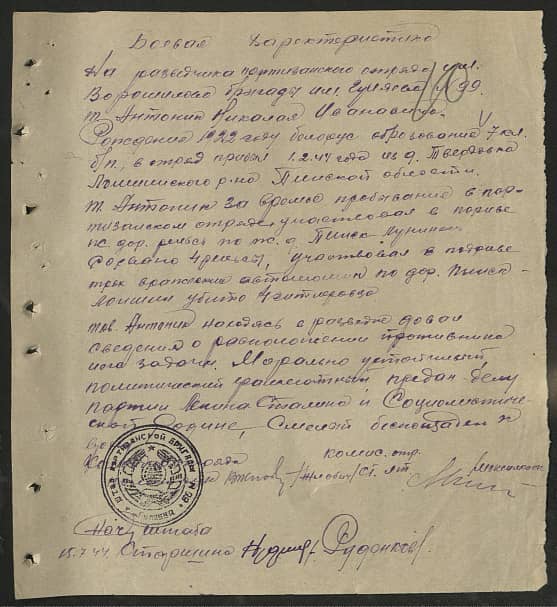 Боевая Характеристика
На разведчика партизанского отряда им.
Ворошилова бригады им. Гуляева № 99.
т. Антоник Николая Ивановича.
Рождения 1922 году белорус образования 7 кл.
б/п, в отряд прибыл 1.2.44 года из д. Твердовка
Логишинского р-на Пинской области.
т. Антоник за время пребывания в пар-
тизанском отряде участвовал в порыве
по ж. д. Пинск Лунинец
4 рельс, участвовал в подрыве
трех вражеских автомашин по дор. Пинск-
Логишин убито 4 гитлеровца
тов. Антоник находясь в разведке давал
сведения о расположении противника
и его задачи. Морально устойчивый,
политически грамотный, предан делу
партии Ленина Сталина и Социалистиче-
ской Родине, Смелый беспощаден к
комис. отр.
ст. л-т
ШТАБ ПАРТИЗАНСКОЙ БРИГАДЫ № 99
Нач штаба
15.7.44. Старшина Руденков